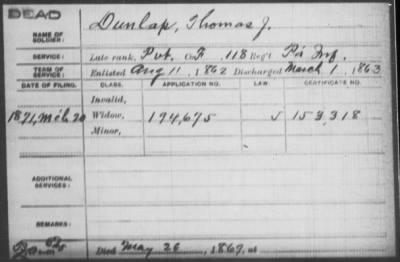 DEAD
NAME OF SOLDIER: Dunlap, Thomas J.
SERVICE: Late rank, Pvt. Co. F, 118 Reg't Pa Inf.
TERM OF SERVICE: Enlisted Aug 11, 1862 Discharged March 1, 1863
DATE OF FILING. CLASS. APPLICATION NO. LAW. CERTIFICATE NO.
Invalid,
1874, Mch 20 Widow, 174,675 153,318
Minor,
ADDITIONAL SERVICES:
REMARKS:
Died May 26, 1867, at